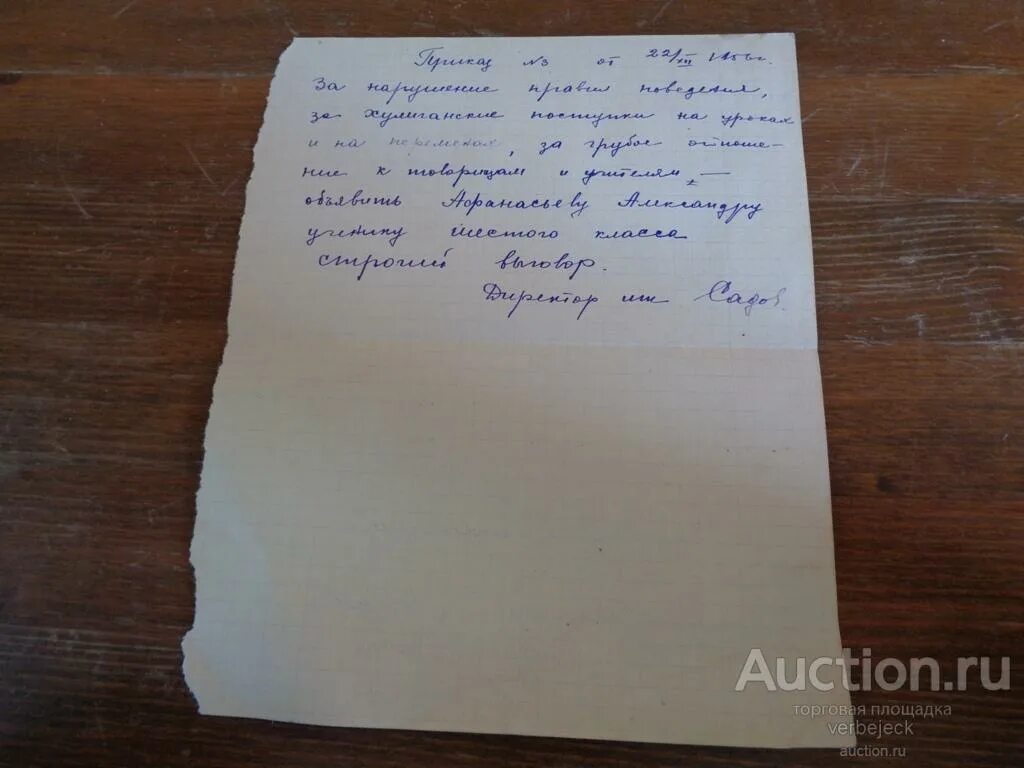 Приказ №3 от 22/XII 1956 г.
За нарушение правил поведения,
за хулиганские поступки на уроках
и на переменах, за грубое отноше-
ние к товарищам и учителям –
объявить Афанасьеву Александру
ученику шестого класса
строгий выговор.
Директор шк Садов
Auction.ru
торговая площадка
verbejeck
auction.ru